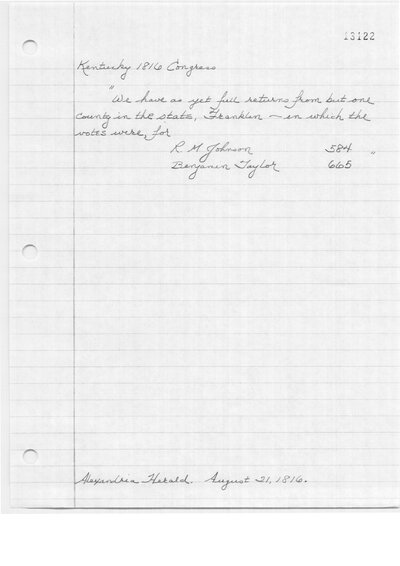 13122
Kentucky 1816 Congress
"We have as yet full returns from but one
county in the state, Franklin — in which the
votes were, for
R M Johnson 584
Benjamin Taylor 665 "
Alexandria Herald. August 21, 1816.